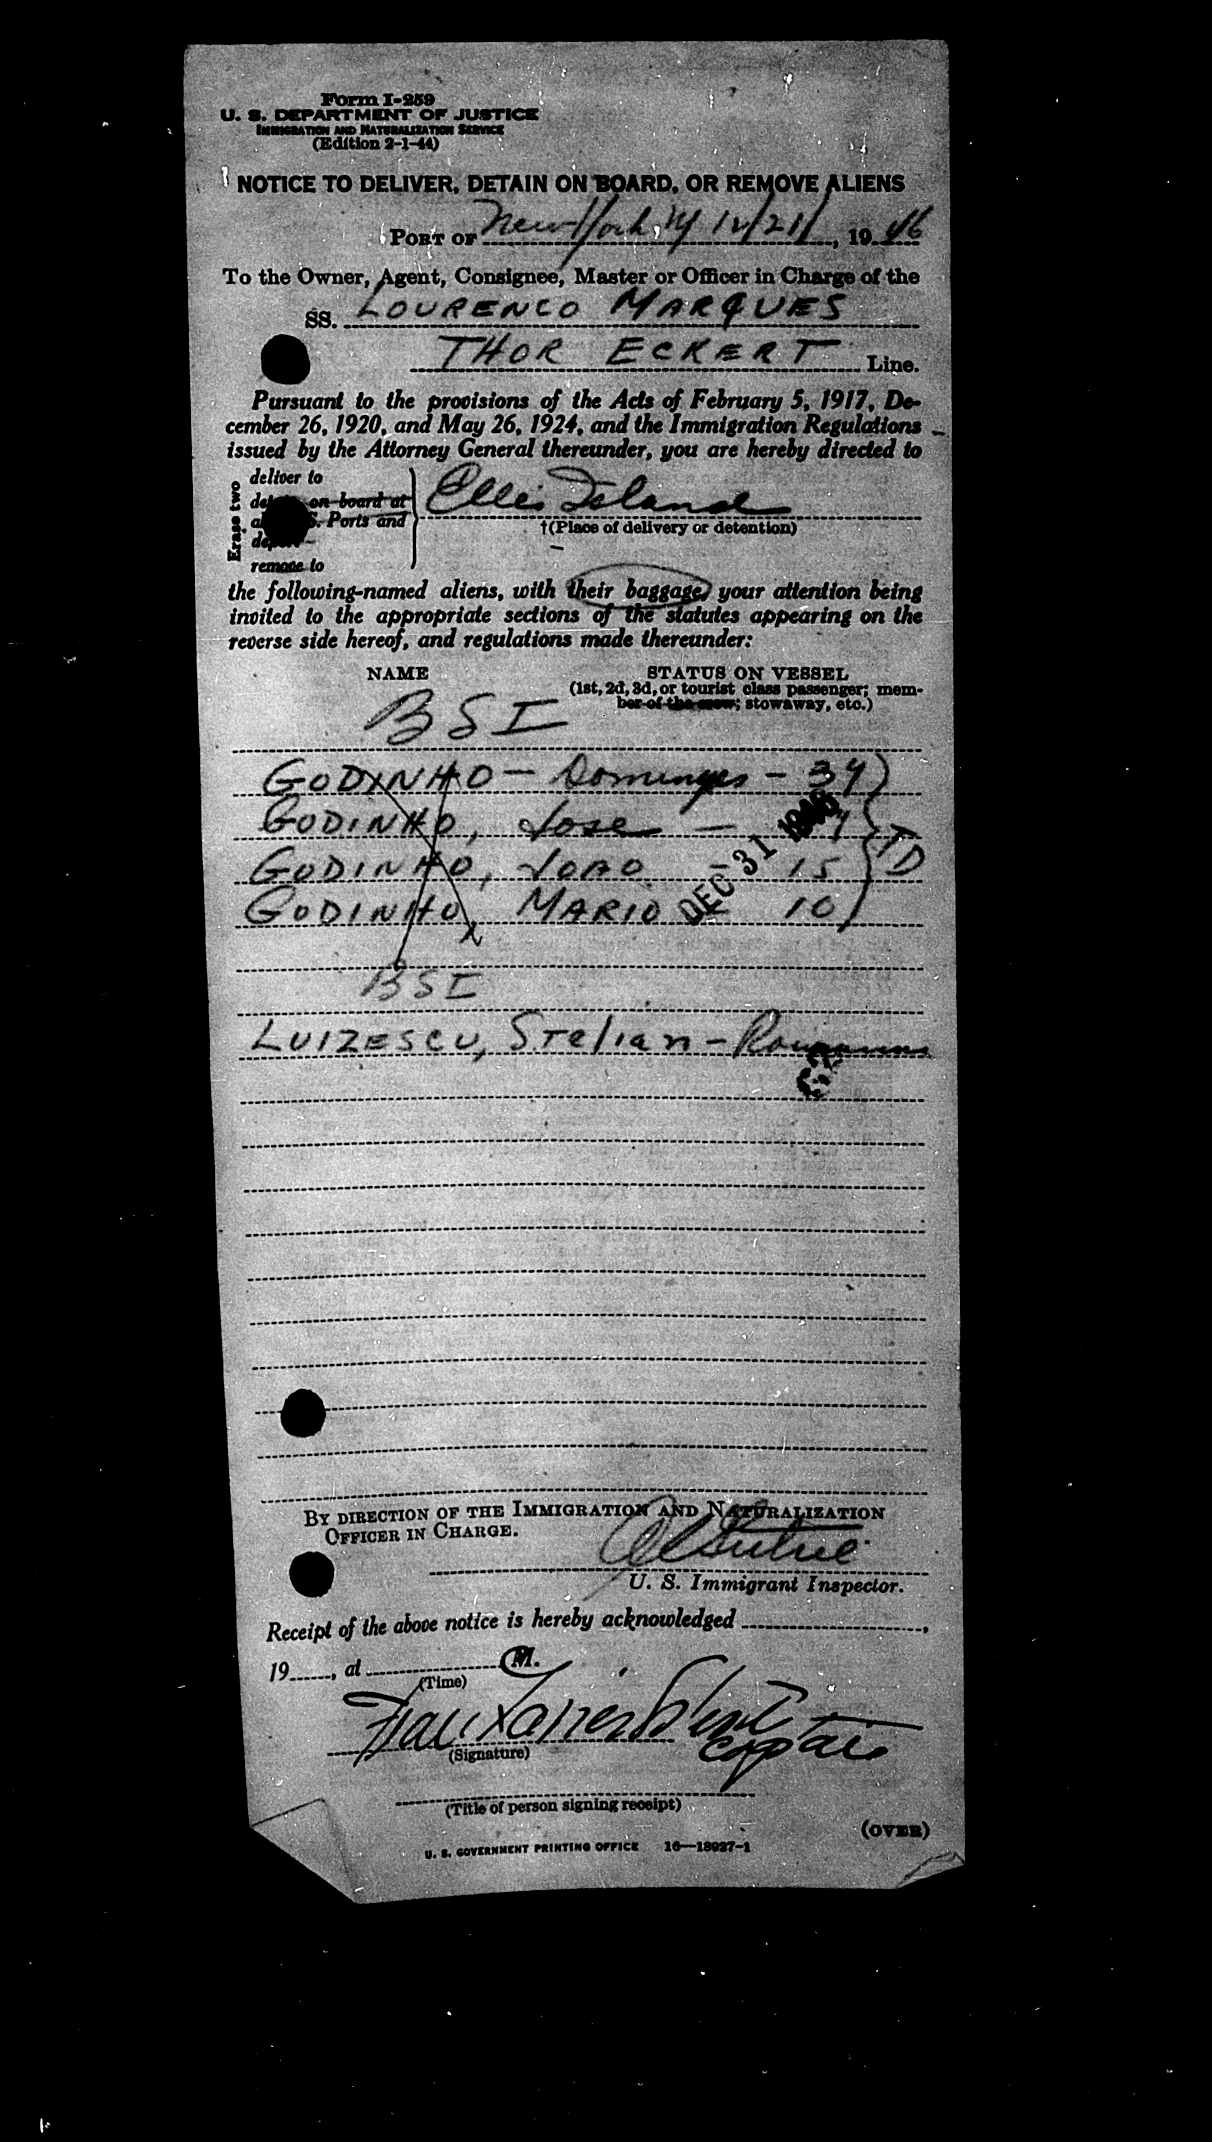 Form I-259
U. S. DEPARTMENT OF JUSTICE
IMMIGRATION AND NATURALIZATION SERVICE
(Edition 2-1-44)
NOTICE TO DELIVER, DETAIN ON BOARD, OR REMOVE ALIENS
PORT OF New York, NY 12/21/, 1946
To the Owner, Agent, Consignee, Master or Officer in Charge of the
SS. LOURENCO MARQUES
THOR ECKERT Line.
Pursuant to the provisions of the Acts of February 5, 1917, De-
cember 26, 1920, and May 26, 1924, and the Immigration Regulations
issued by the Attorney General thereunder, you are hereby directed to
Erase two
deliver to
on board at
Ports and
remove to
Ellis Island
†(Place of delivery or detention)
the following-named aliens, with their baggage, your attention being
invited to the appropriate sections of the statutes appearing on the
reverse side hereof, and regulations made thereunder:
NAME STATUS ON VESSEL
(1st, 2d, 3d, or tourist class passenger; mem-
ber of the crew; stowaway, etc.)
BSI
GODINHO - Domingos - 34
GODINHO, Jose -
GODINHO, JOAO - 15
GODINHO, MARIO - 10
TD
DEC 31 1946
BSI
LUIZESCU, Stelian - Roumanian
BY DIRECTION OF THE IMMIGRATION AND NATURALIZATION
OFFICER IN CHARGE.
U. S. Immigrant Inspector.
Receipt of the above notice is hereby acknowledged ,
19 , at M.
(Time)
(Signature)
(Title of person signing receipt)
(OVER)
U. S. GOVERNMENT PRINTING OFFICE 16—18027-1